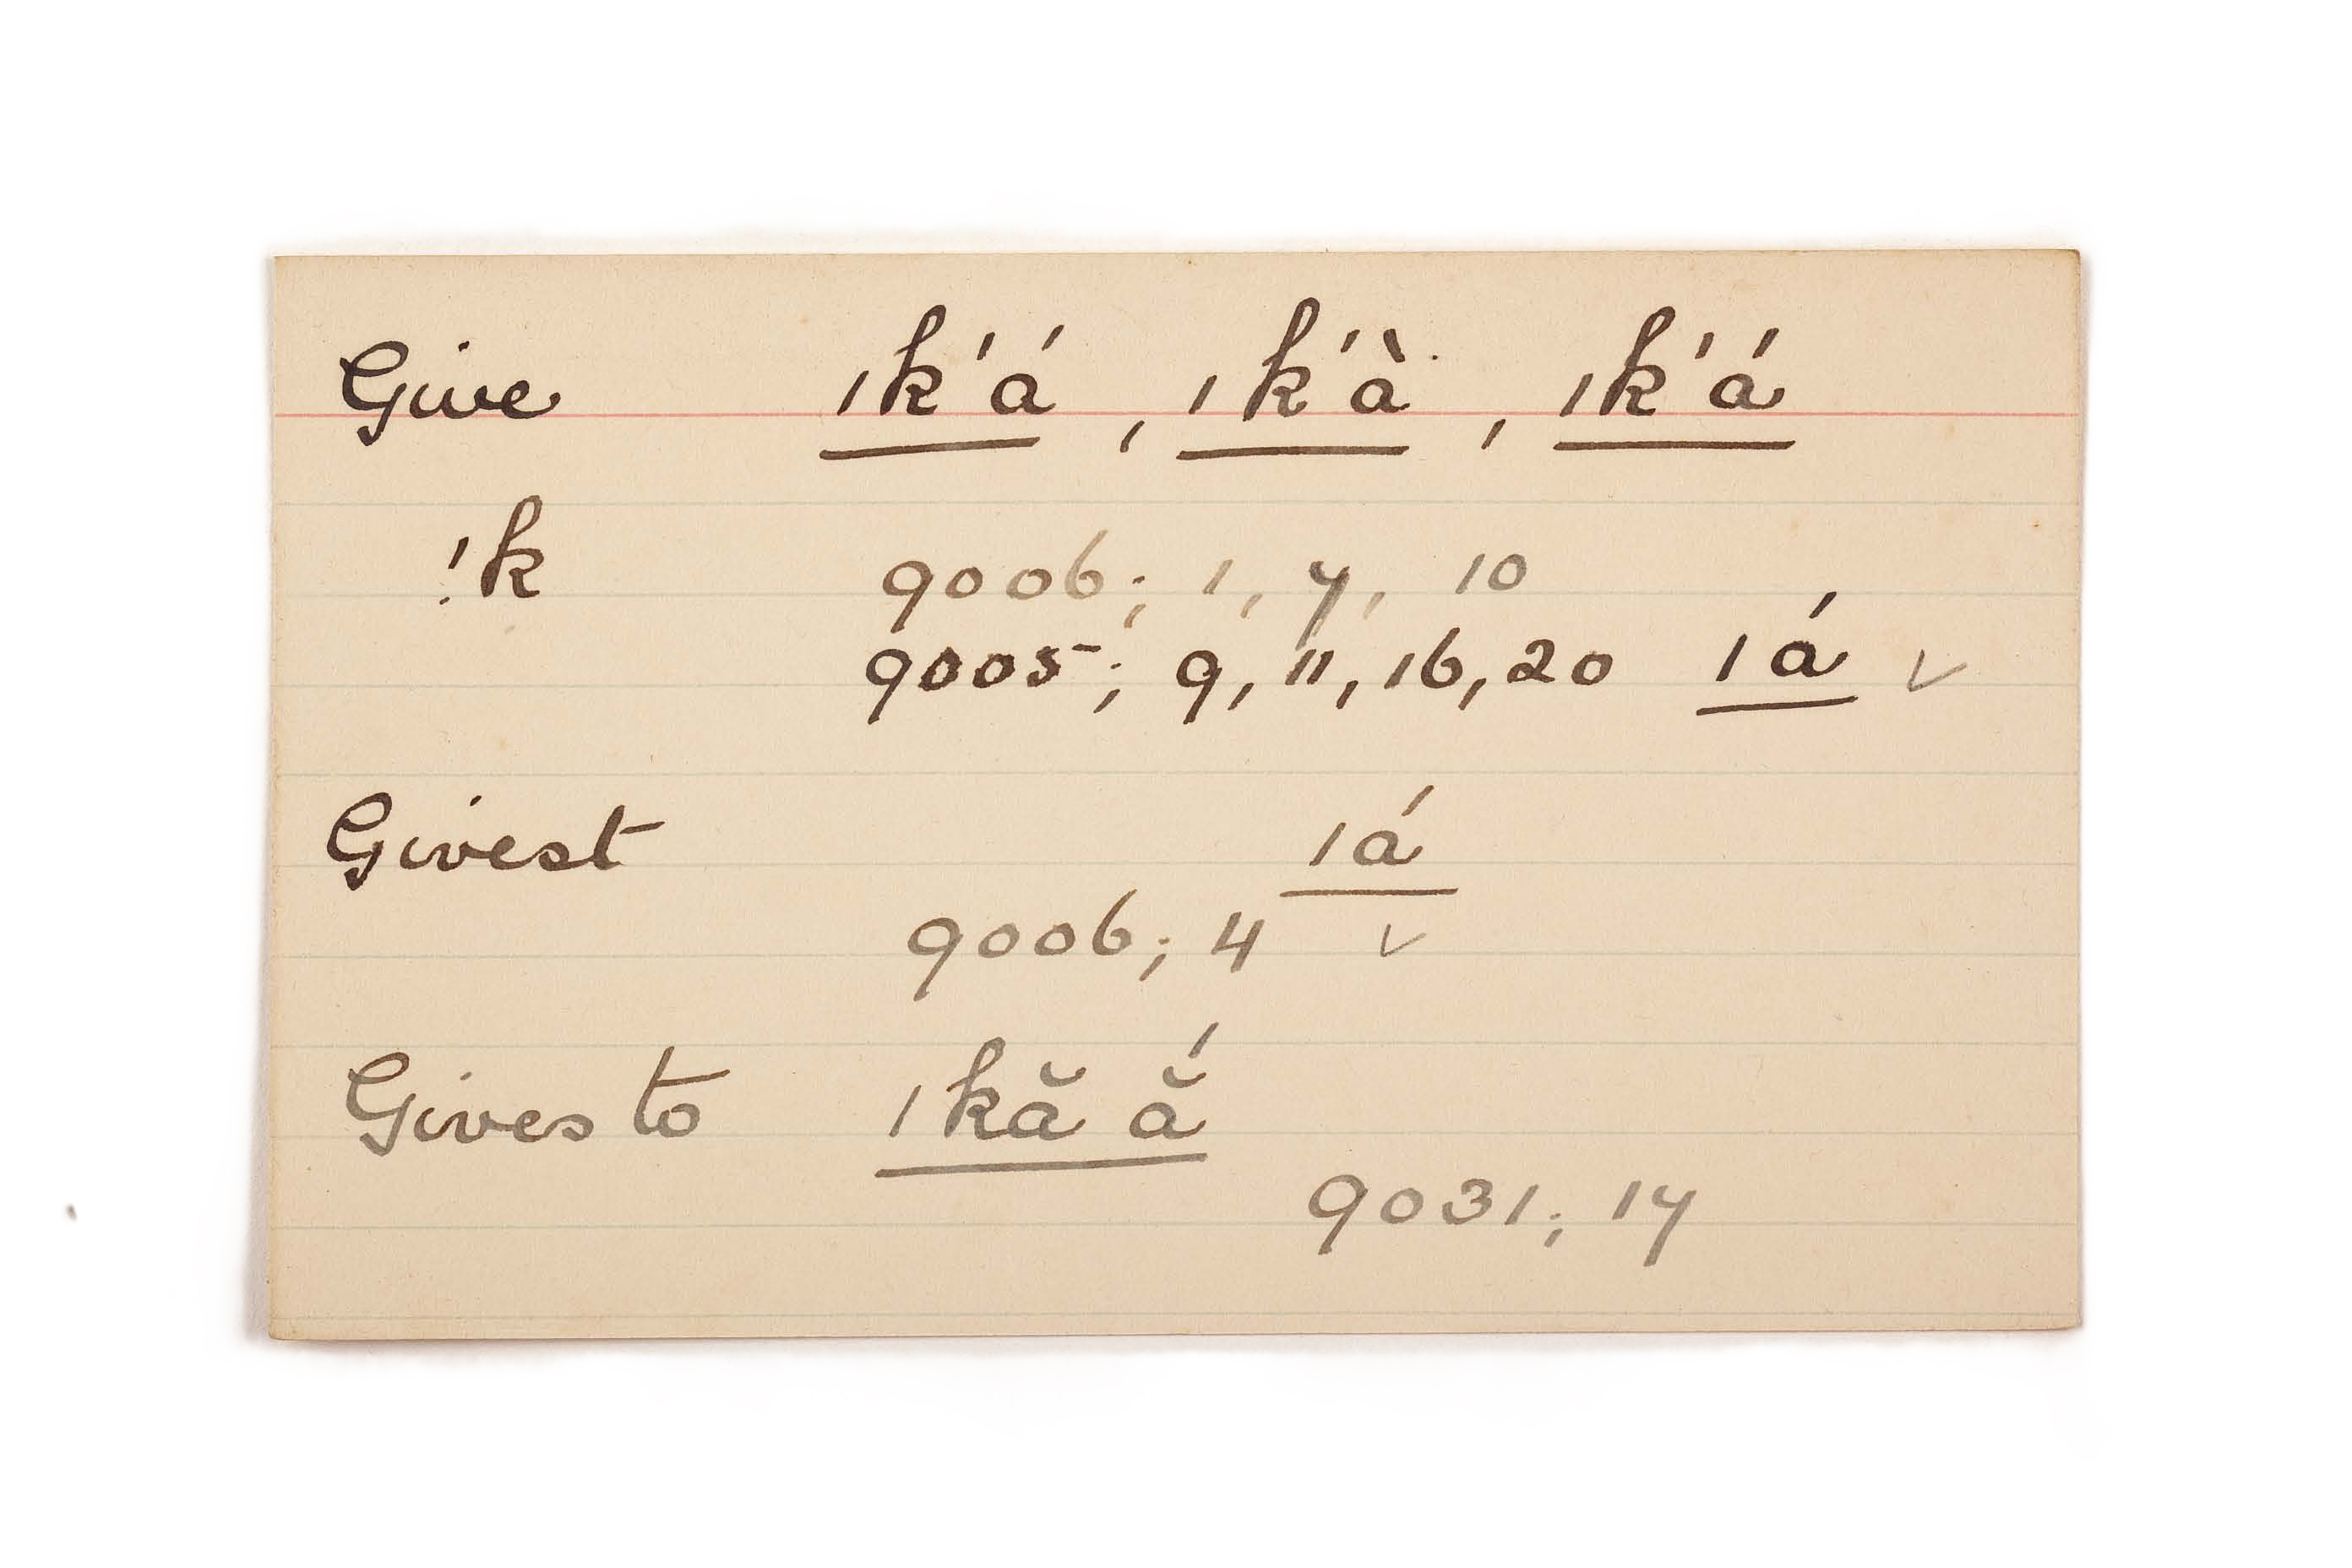 Give ık'á , ık'à , ık'á
!k 9006; 1, 7, 10
9005; 9, 11, 16, 20 ıá ✓
Givest ıá
9006; 4 ✓
Gives to ıkă ắ
9031; 17